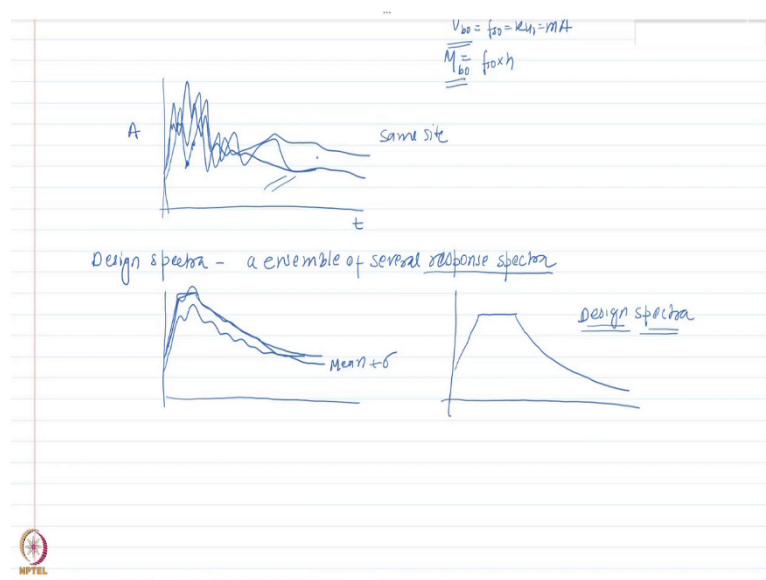 ...
V_b0 = f_s0 = ku_0 = mA
M_b0 = f_s0 × h
A
same site
t
Design spectra - a ensemble of several response spectra
Mean + σ
Design spectra
NPTEL